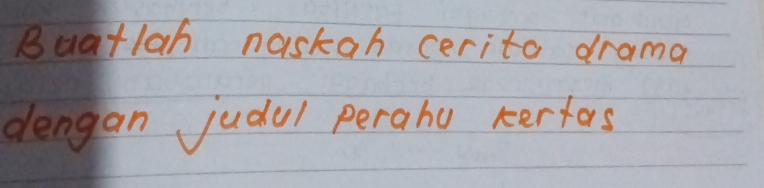 Buatlah naskah cerita drama
dengan judul perahu kertas